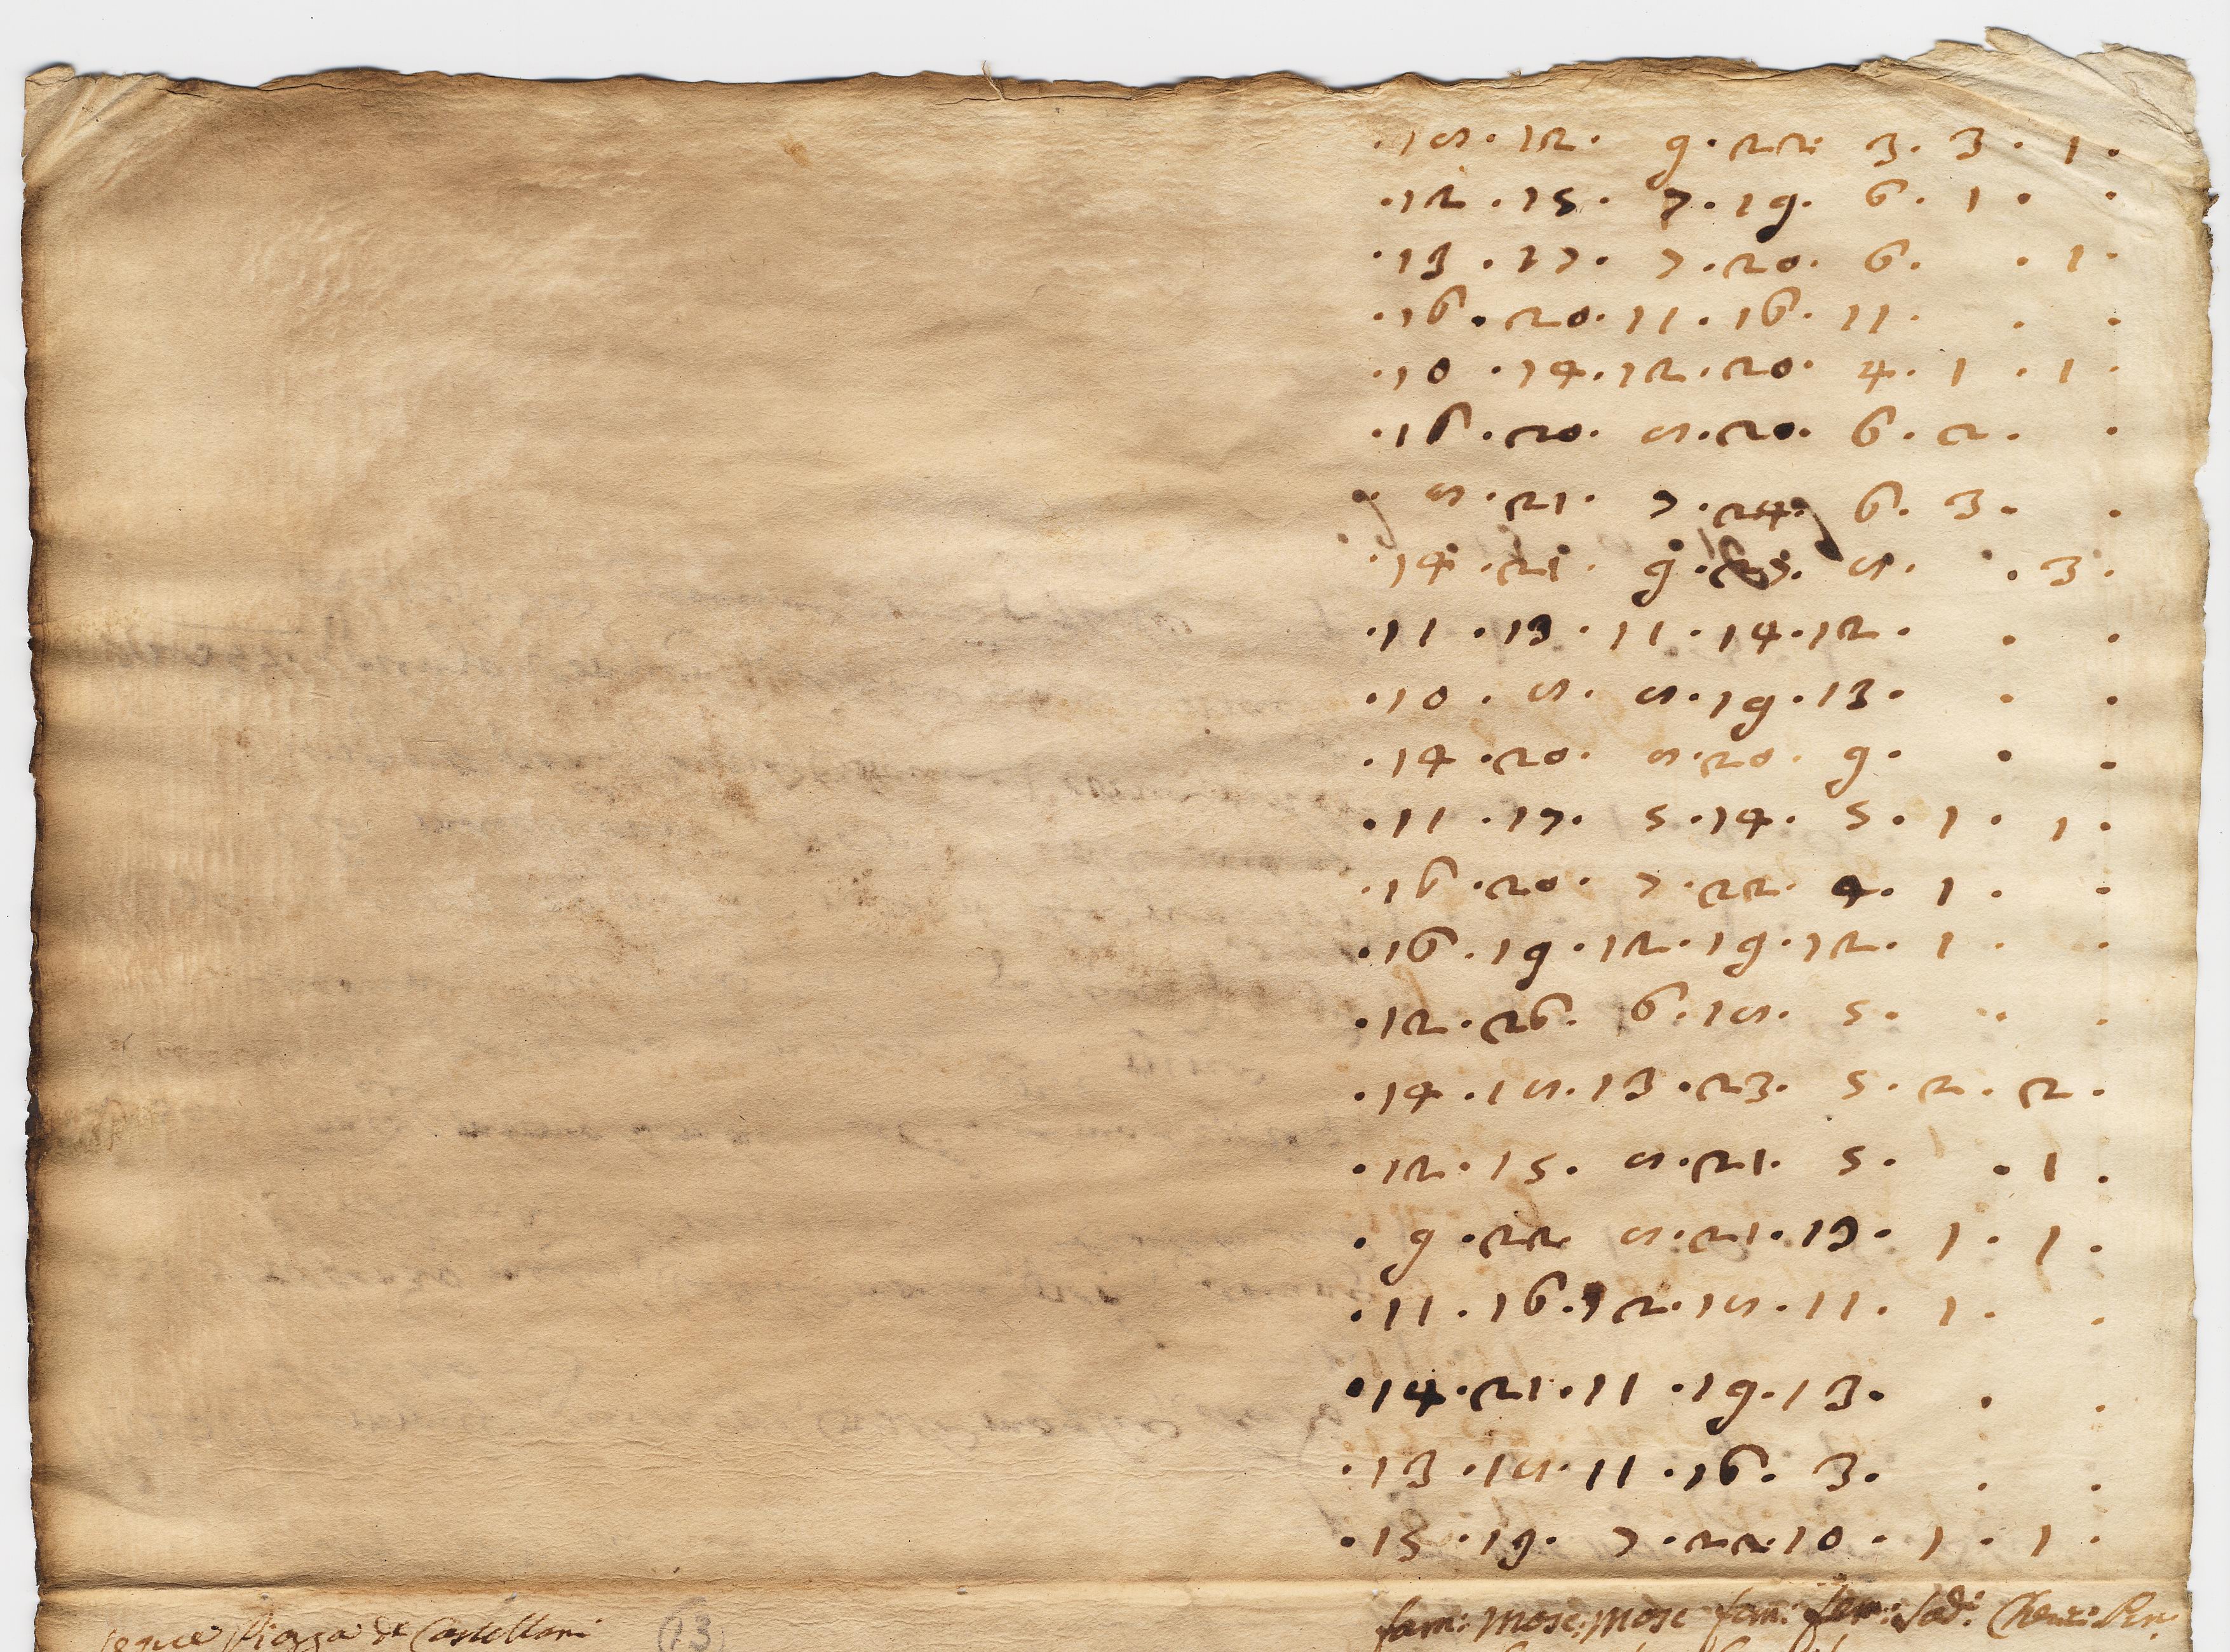 .18.12. 9.22. 3. 3. 1.
.12.15. 7.19. 6. 1. .
.13.17. 7.20. 6. . 1.
.16.20.11.16.11. . .
.10.14.12.20. 4. 1. 1.
.16.20. 8.20. 6. 2. .
. 8.21. 7.24. 6. 3. .
.14.21. 9. 8. . 3.
.11.13.11.14.12. . .
.10. 8. 8.19.13. . .
.14.20. 8.20. 9. . .
.11.17. 5.14. 5. 1. 1.
.16.20. 7.22. 4. 1. .
.16.19.12.19.12. 1. .
.12.26. 6.18. 5. . .
.14.18.13.23. 5. 2. 2.
.12.15. 8.21. 5. . 1.
. 9.22. 8.21.13. 1. 1.
.11.16.12.18.11. 1. .
.14.21.11.19.13. . .
.13.18.11.16. 3. . .
.15.19. 7.22.10. 1. 1.
segue Piazza de Castellani (13) fam: Mosc: Mosc fam: